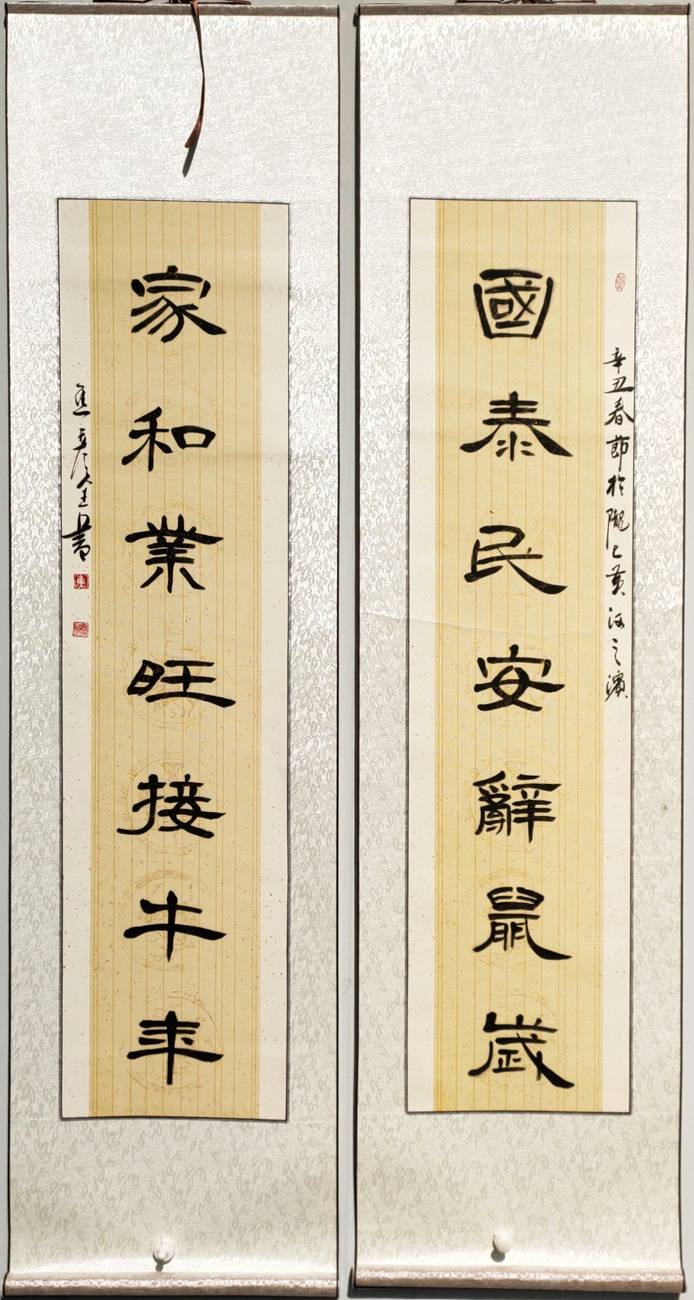 辛丑春節於隴上黃河之濱
國泰民安辭鼠歲
家和業旺接牛年
書